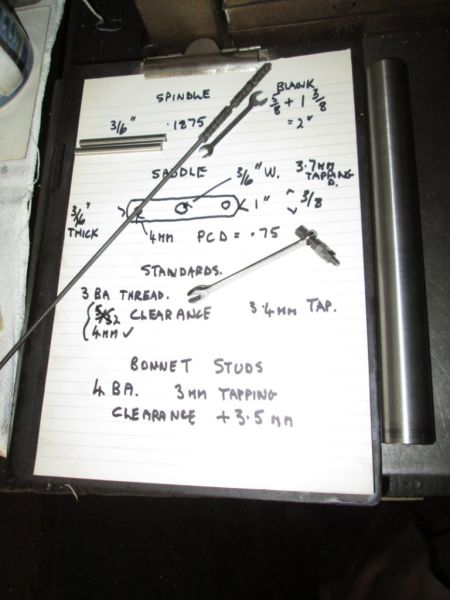 SPINDLE
BLANK
5/8 + 1 3/8
= 2"
3/6" .1875
SADDLE
3/6" W. 3.7MM TAPPING D.
3/6" THICK
1" 3/8
4MM PCD = .75
STANDARDS.
3 BA THREAD.
5/32 CLEARANCE 3.4MM TAP.
4MM ✓
BONNET STUDS
4 BA. 3MM TAPPING
CLEARANCE + 3.5 MM